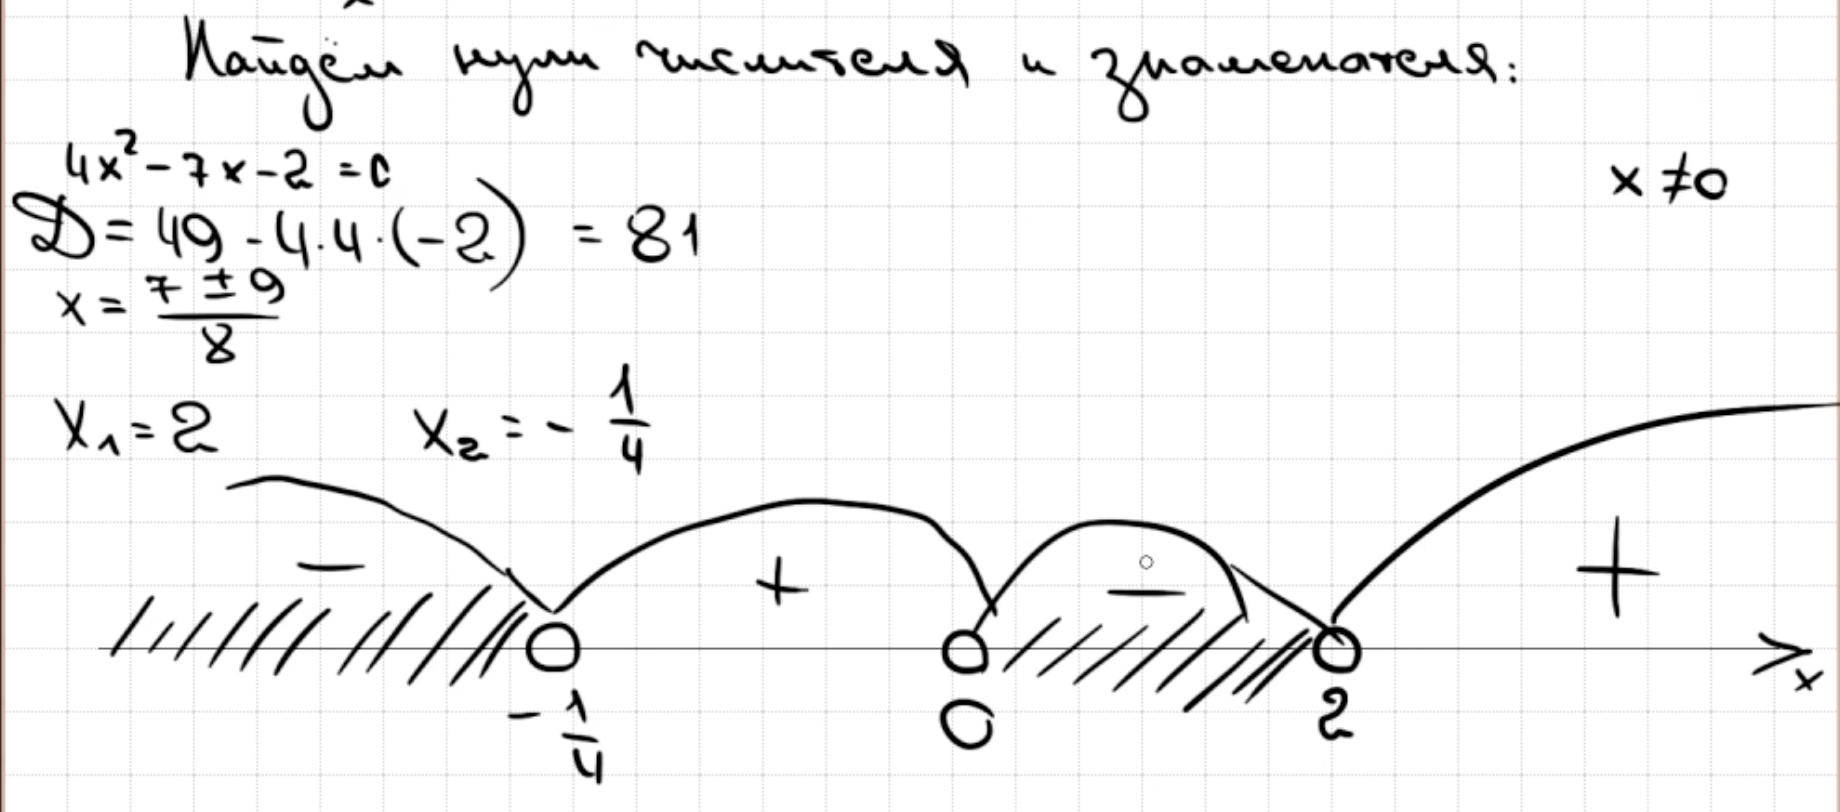 Найдём нули числителя и знаменателя:
4x² - 7x - 2 = 0
x ≠ 0
D = 49 - 4·4·(-2) = 81
x = (7 ± 9)/8
x₁ = 2 x₂ = - 1/4
- + - +
- 1/4 0 2 x